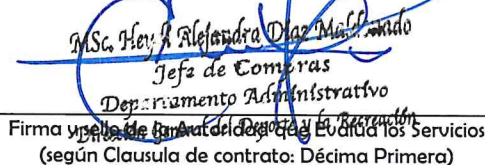 MSc. Alejandra Díaz
Jefa de Compras
Departamento Administrativo
Dirección General del Deporte y la Recreación
Firma y sello de la Autoridad que Evalúa los Servicios
(según Clausula de contrato: Décima Primera)